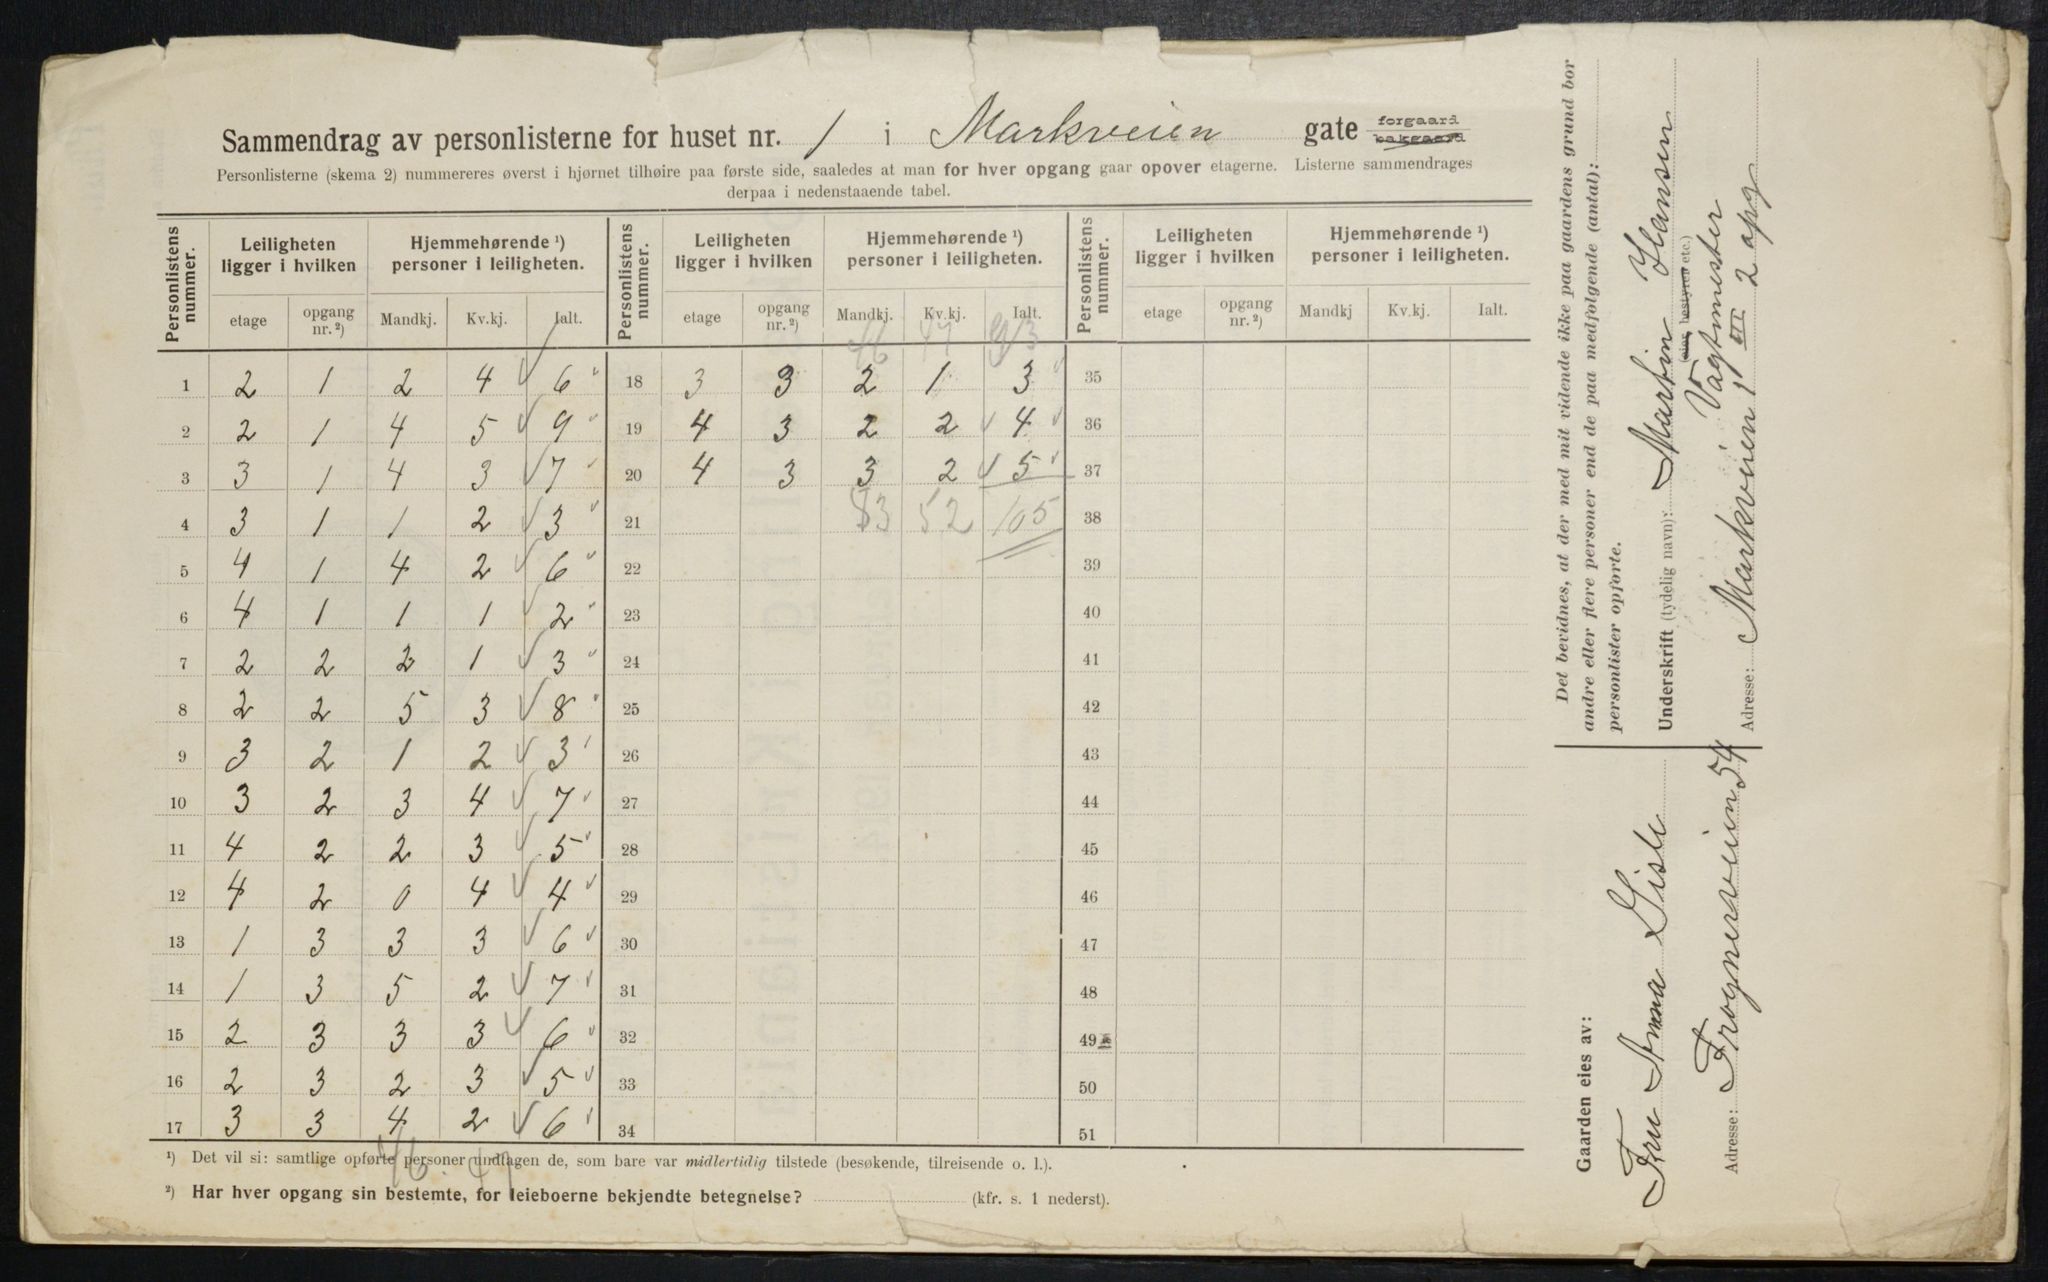 Sammendrag av personlisterne for huset nr. 1 i Markveien gate forgaard bakgaard
Personlisterne (skema 2) nummereres øverst i hjørnet tilhøire paa første side, saaledes at man for hver opgang gaar opover etagerne. Listerne sammendrages
derpaa i nedenstaaende tabel.
Personlistens nummer. Leiligheten ligger i hvilken Hjemmehørende ¹) personer i leiligheten. Personlistens nummer. Leiligheten ligger i hvilken Hjemmehørende ¹) personer i leiligheten. Personlistens nummer. Leiligheten ligger i hvilken Hjemmehørende ¹) personer i leiligheten.
etage opgang nr. ²) Mandkj. Kv.kj. Ialt. etage opgang nr. ²) Mandkj. Kv.kj. Ialt. etage opgang nr. ²) Mandkj Kv.kj. Ialt.
46 47 93
1 2 1 2 4 6 18 3 3 2 1 3 35
2 2 1 4 5 9 19 4 3 2 2 4 36
3 3 1 4 3 7 20 4 3 3 2 5 37
4 3 1 1 2 3 21 53 52 105 38
5 4 1 4 2 6 22 39
6 4 1 1 1 2 23 40
7 2 2 2 1 3 24 41
8 2 2 5 3 8 25 42
9 3 2 1 2 3 26 43
10 3 2 3 4 7 27 44
11 4 2 2 3 5 28 45
12 4 2 0 4 4 29 46
13 1 3 3 3 6 30 47
14 1 3 5 2 7 31 48
15 2 3 3 3 6 32 49
16 2 3 2 3 5 33 50
17 3 3 4 2 6 34 51
46 47
¹) Det vil si: samtlige opførte personer undtagen de, som bare var midlertidig tilstede (besøkende, tilreisende o. l.).
²) Har hver opgang sin bestemte, for leieboerne bekjendte betegnelse? (kfr. s. 1 nederst).
Det bevidnes, at der med mit vidende ikke paa gaardens grund bor
andre eller flere personer end de paa medfølgende (antal):
personlister opførte.
Underskrift (tydelig navn): Martin Hansen
(eier, bestyrer etc.)
Vagtmester
Adresse: Markveien 1 III 2 opg
Gaarden eies av:
Fru Anna Gisle
Adresse: Frognerveien 54